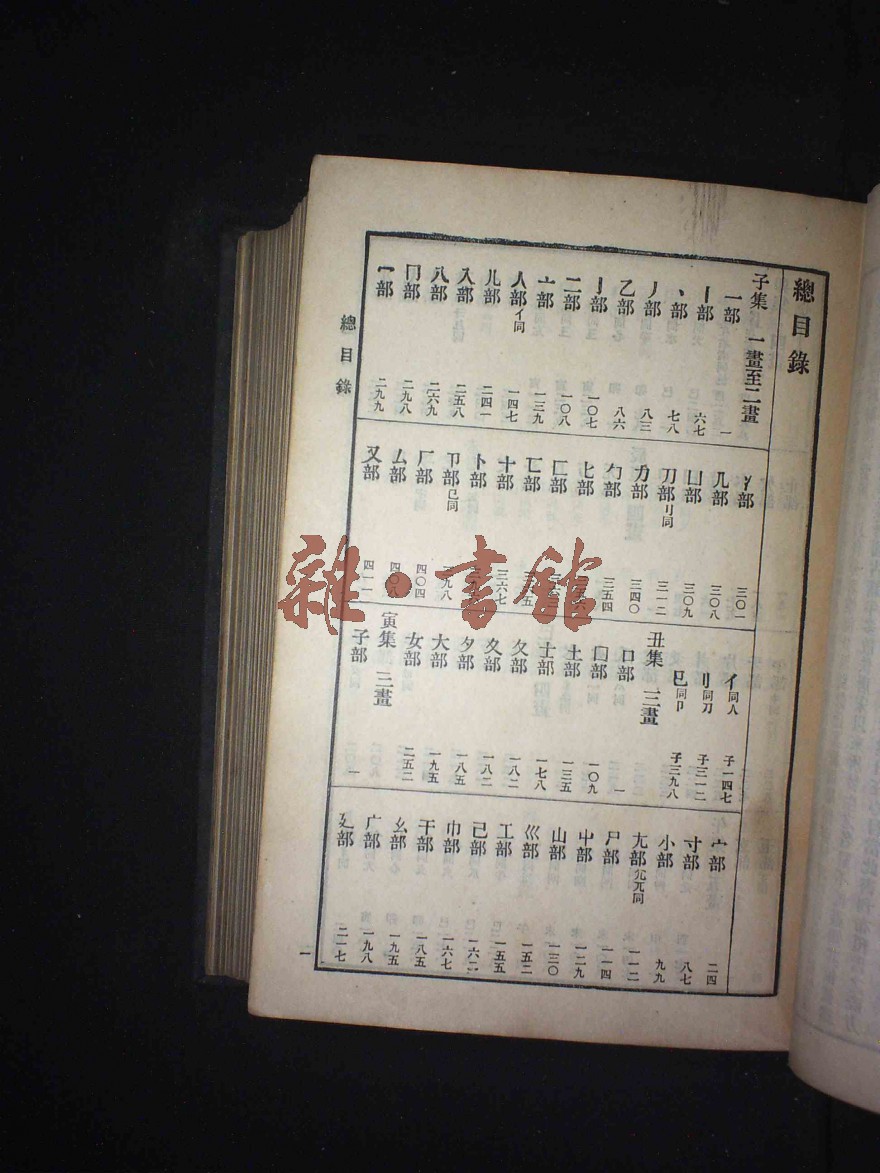 總目錄
子集 一畫至二畫
一部 一
丨部 六七
丶部 七八
丿部 八三
乙部 八六
亅部 一〇七
二部 一〇八
亠部 一三九
人部亻同 一四七
儿部 二四一
入部 二五八
八部 二六九
冂部 二九八
冖部 二九九
冫部 三〇一
几部 三〇八
凵部 三〇九
刀部刂同 三一二
力部 三四〇
勹部 三五四
匕部
匚部
匸部
十部 三六七
卜部
卩部㔾同 三九八
厂部 四〇四
厶部 四〇八
又部 四一一
亻同人 子一四七
刂同刀 子三一二
㔾同卩 子三九八
丑集 三畫
口部 一
囗部 一〇九
土部 一三五
士部 一七八
夂部 一八二
夊部 一八二
夕部 一八五
大部 一九五
女部 二五二
寅集 三畫
子部 一
宀部 二四
寸部 八七
小部 九九
尢部尣兀同 一一二
尸部 一一四
屮部 一二九
山部 一三〇
巛部 一五二
工部 一五五
己部 一六二
巾部 一六七
干部 一八五
幺部 一九五
广部 一九八
廴部 二一七
總目錄
一
雜·書館